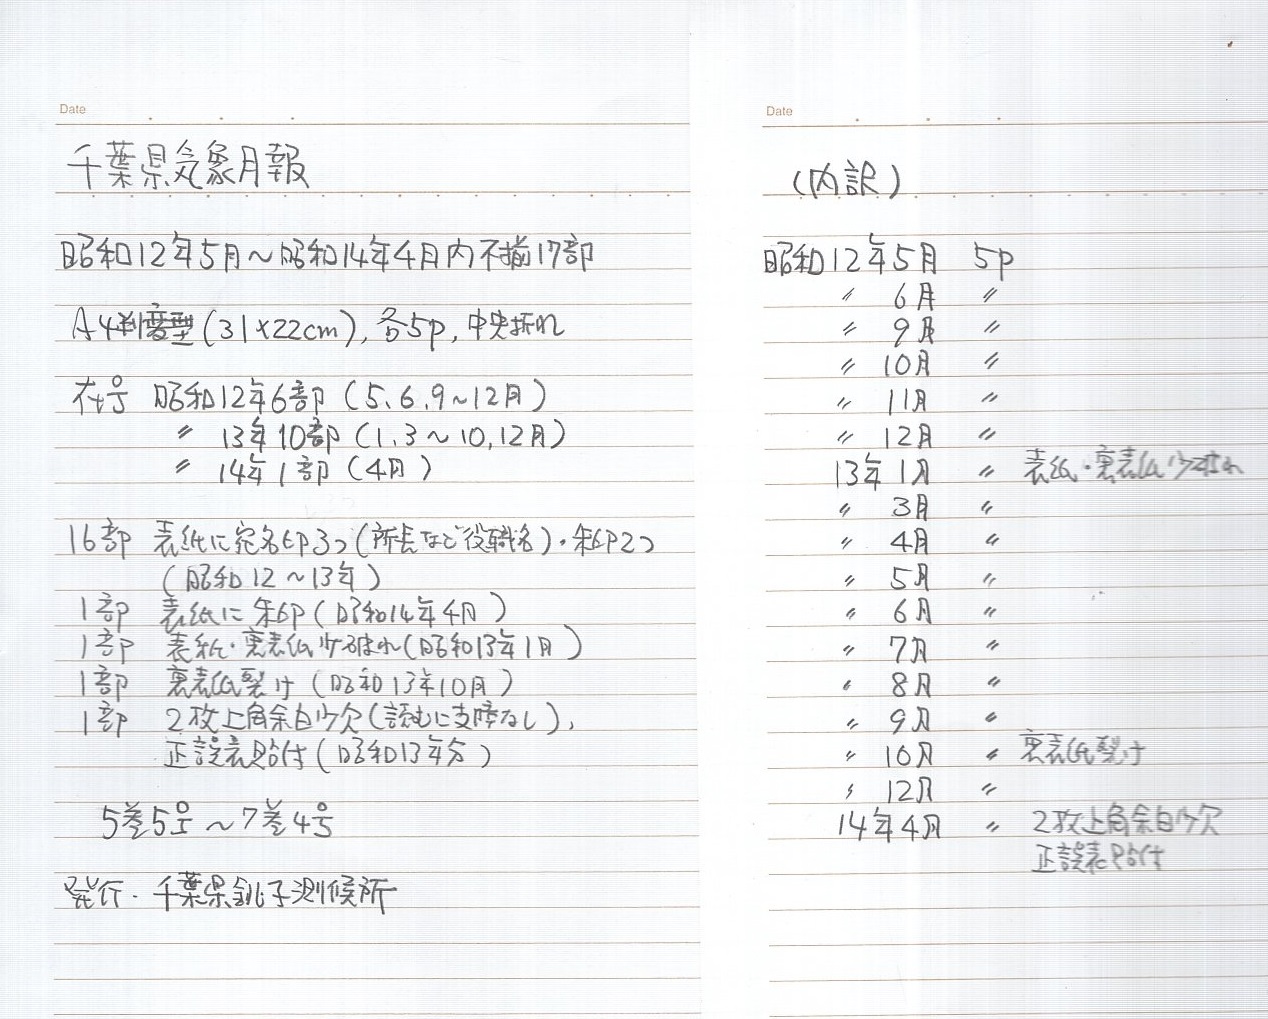 Date
千葉県気象月報
昭和12年5月～昭和14年4月内不揃17部
A4判変型(31×22cm), 各5p, 中央折れ
在号 昭和12年6部(5、6、9～12月)
〃 13年10部(1、3～10,12月)
〃 14年1部(4月)
16部 表紙に宛名印3つ(所長など役職名)・朱印2つ
(昭和12～13年)
1部 表紙に朱印(昭和14年4月)
1部 表紙・裏表紙少破れ(昭和13年1月)
1部 裏表紙裂け(昭和13年10月)
1部 2枚上角余白少欠(読むに支障なし),
正誤表貼付(昭和13年分)
5巻5号～7巻4号
発行・千葉県銚子測候所
Date
(内訳)
昭和12年5月 5p
〃 6月 〃
〃 9月 〃
〃 10月 〃
〃 11月 〃
〃 12月 〃
13年1月 〃 表紙・裏表紙少破れ
〃 3月 〃
〃 4月 〃
〃 5月 〃
〃 6月 〃
〃 7月 〃
〃 8月 〃
〃 9月 〃
〃 10月 〃 裏表紙裂け
〃 12月 〃
14年4月 〃 2枚上角余白少欠
正誤表貼付